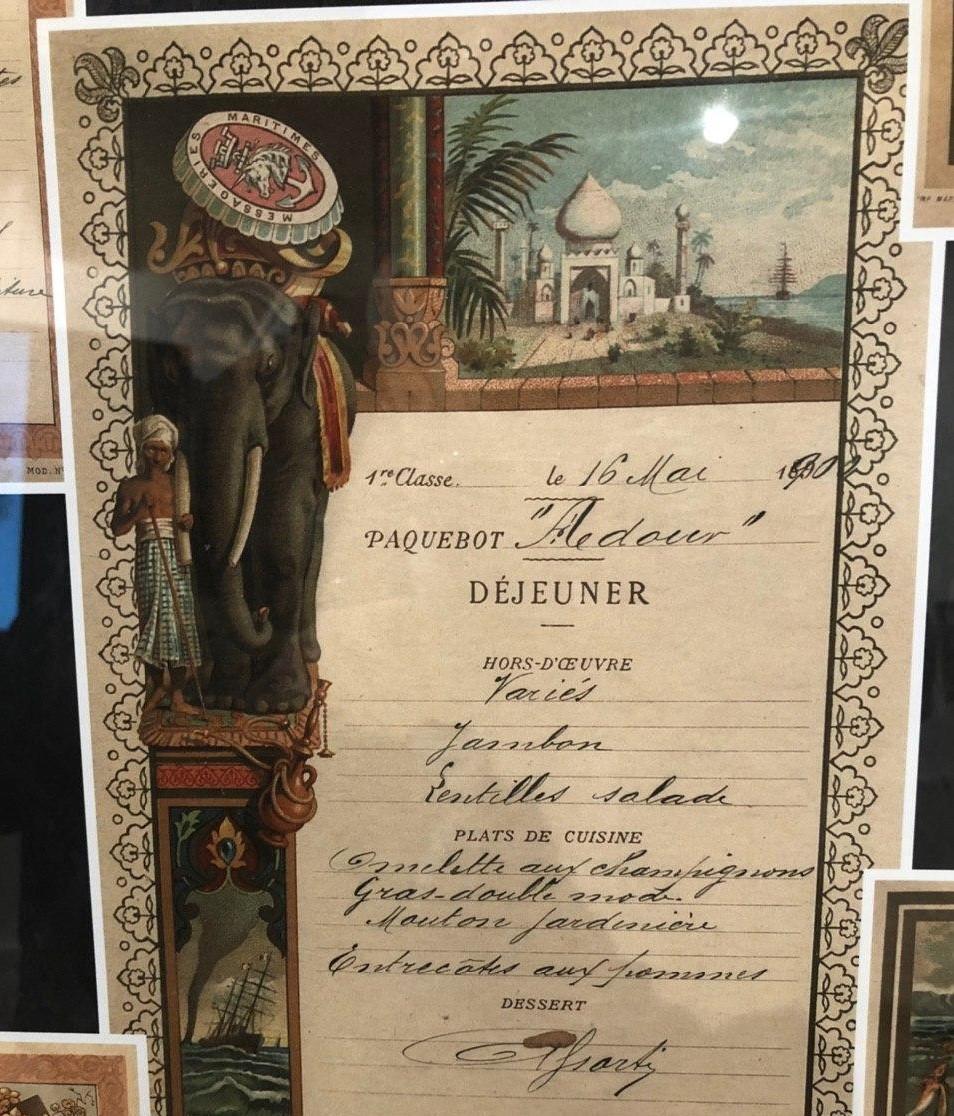 MESSAGERIES MARITIMES
1re Classe. le 16 Mai
PAQUEBOT "Adour"
DÉJEUNER
HORS-D'ŒUVRE
Variés
Jambon
Lentilles salade
PLATS DE CUISINE
Omelette aux champignons
Gras-double mode.
Mouton Jardinière
Entrecôtes aux pommes
DESSERT
Assorti
MOD. N